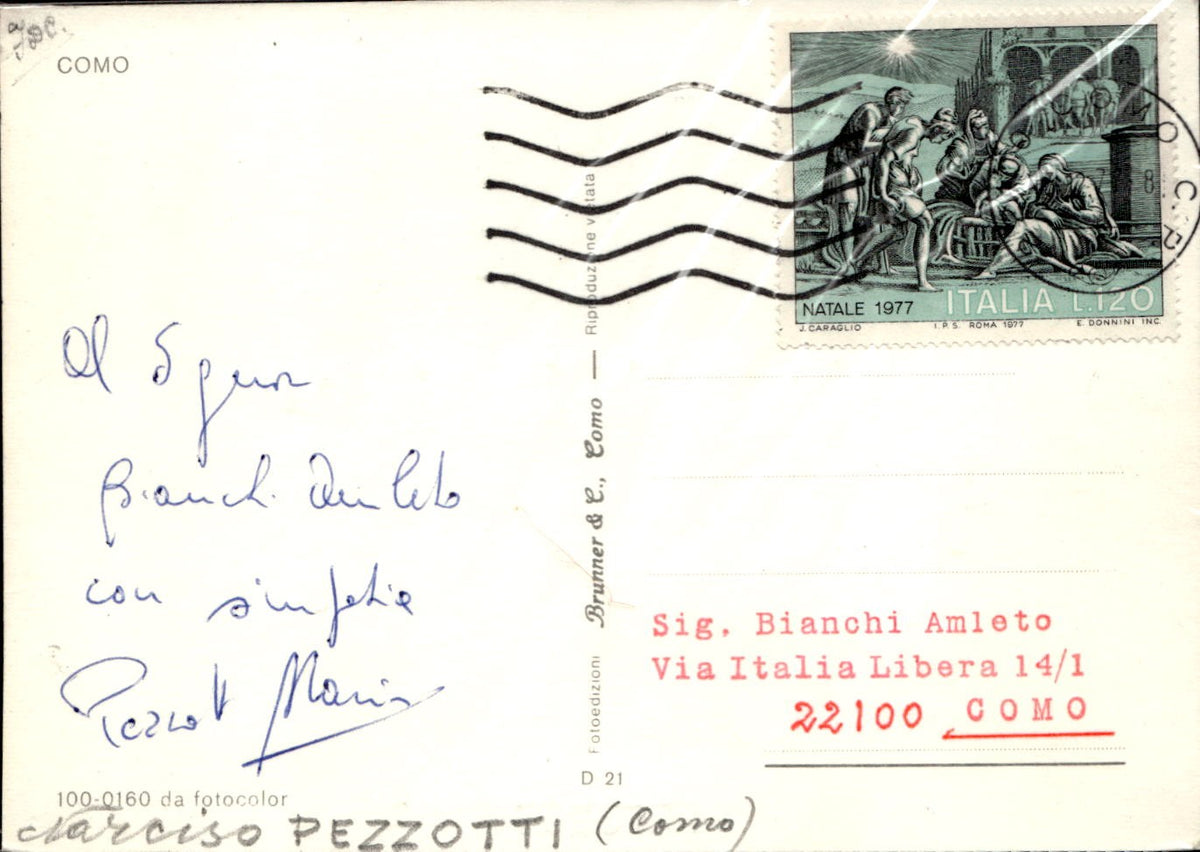 COMO
NATALE 1977 ITALIA L.120
J. CARAGLIO I.P.S. ROMA 1977 E. DONNINI INC.
Al Signor
Bianchi Amleto
con simpatia
Pezzotti
Fotoedizioni Brunner & C., Como — Riproduzione vietata
Sig. Bianchi Amleto
Via Italia Libera 14/1
22100 COMO
D 21
100-0160 da fotocolor
Narciso PEZZOTTI (Como)